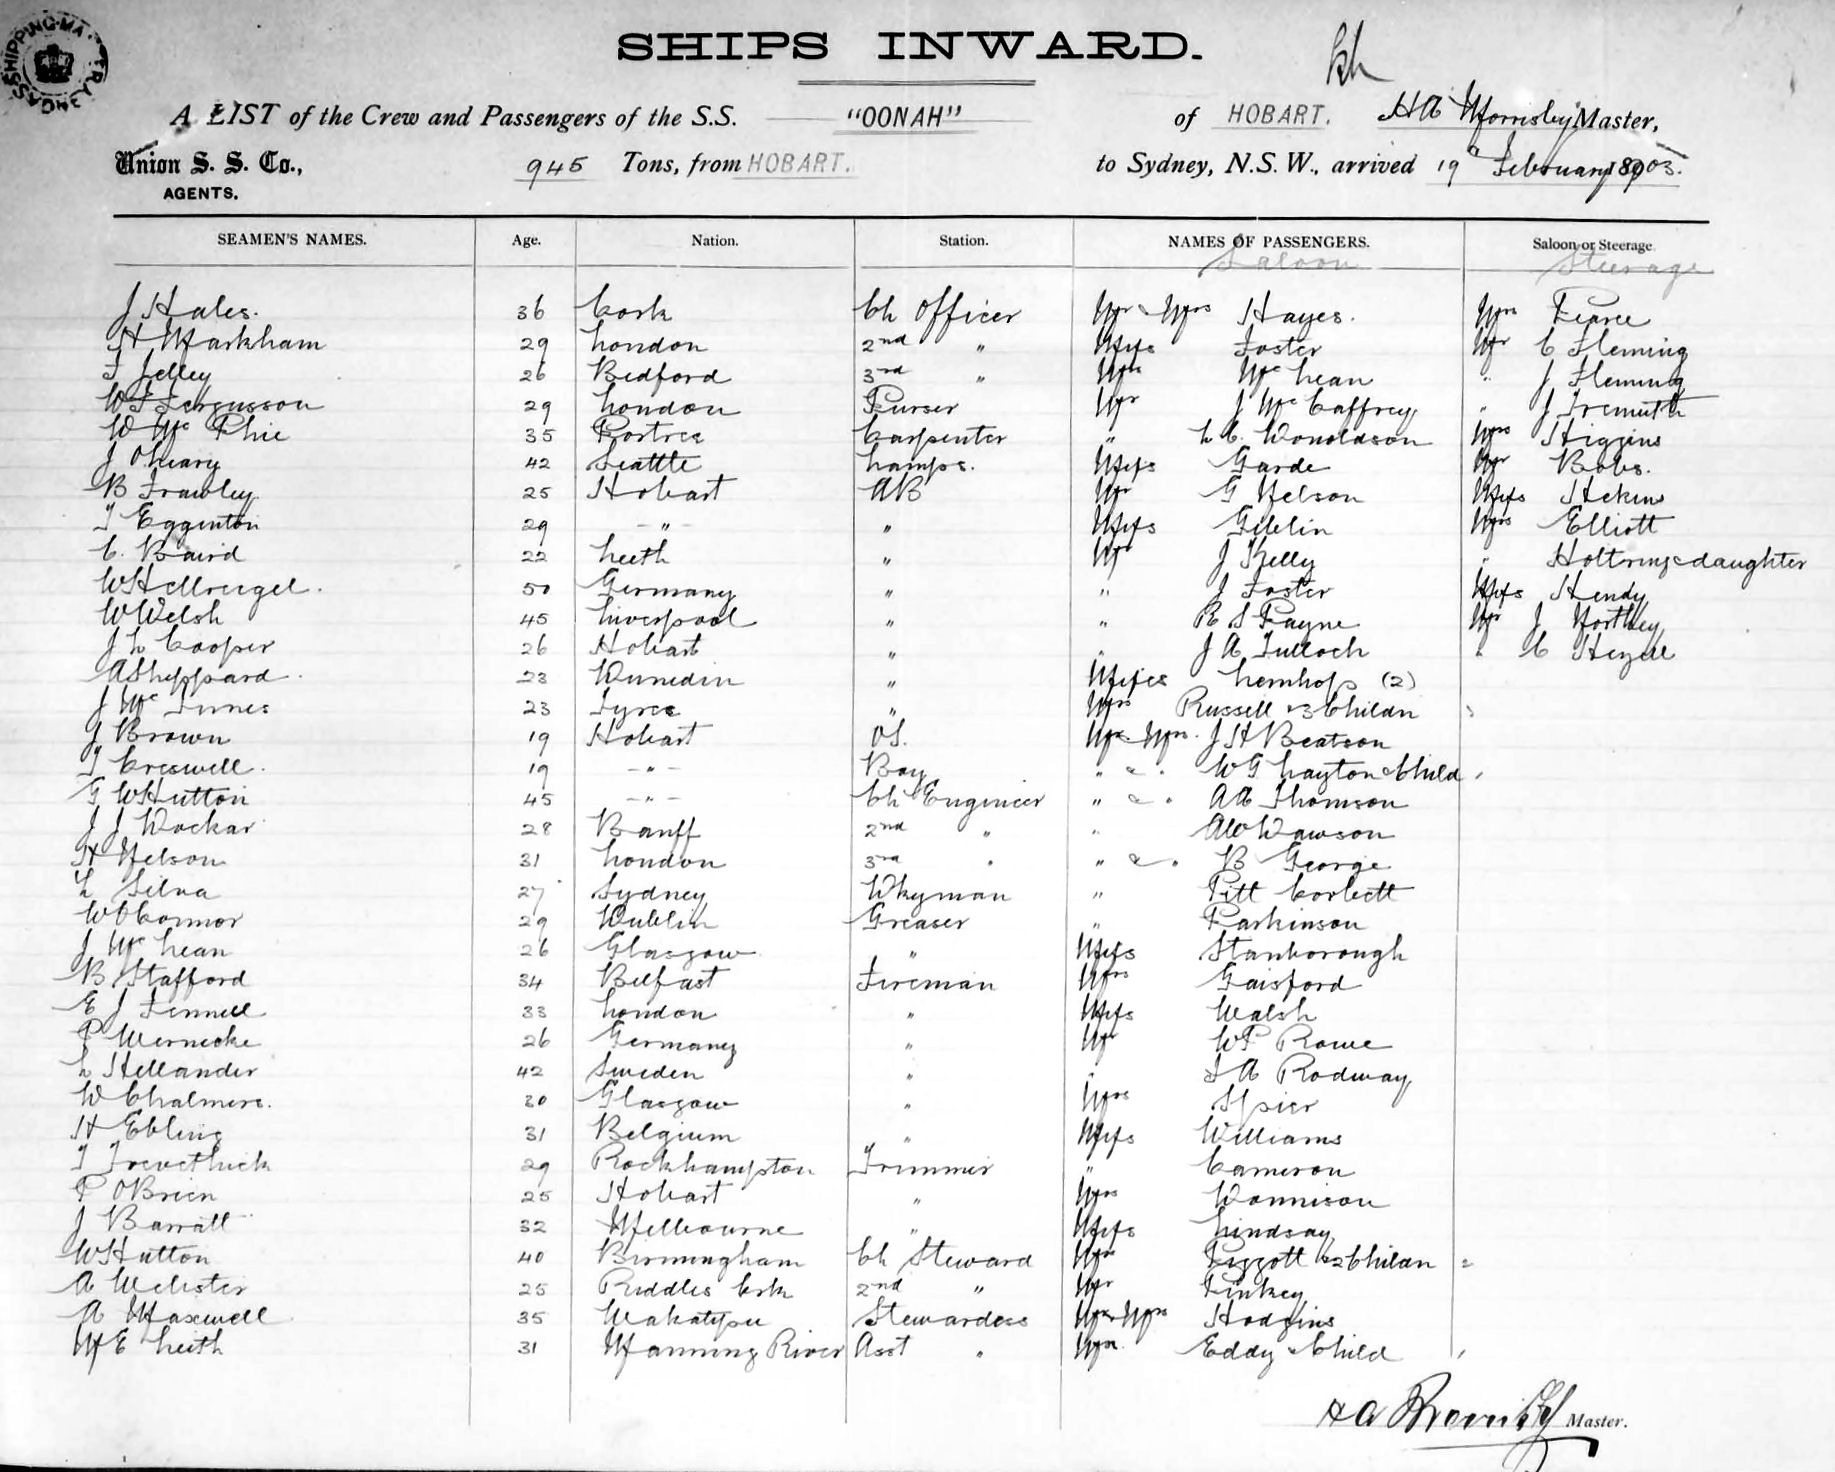 SHIPPING MASTER
SHIPS INWARD.
A LIST of the Crew and Passengers of the S.S. "OONAH" of HOBART. H A Morrisby Master,
Union S. S. Co., 945 Tons, from HOBART. to Sydney, N.S.W., arrived 19th February 1903.
AGENTS.
SEAMEN'S NAMES. Age. Nation. Station. NAMES OF PASSENGERS. Saloon or Steerage
Saloon Steerage
J Hales. 36 Cork Ch Officer Mr & Mrs Hayes. Mrs Pearce
H Markham 29 London 2nd " Miss Foster Mr C Fleming
F Jelley 26 Bedford 3rd " Mrs McLean " J Fleming
W F Fergusson 29 London Purser Mr J McCaffrey " J Tremuth
W McPhie 35 Portree Carpenter " L C Donoldson Mrs Higgins
J OLeary 42 Seattle Lamps. Miss Garde Mr Bobs.
B Frawley 25 Hobart AB Mr G Nelson Miss
T Egginton 29 - " - " Miss Giblin Mrs Elliott
C. Baird 22 Leith " Mr J Kelly " & daughter
W Hellreigel. 50 Germany " " J Foster Miss Hendy
W Welsh 45 Liverpool " " R S Payne Mr J
J L Cooper 26 Hobart " " J A Tulloch " C
A Sheppard. 23 Dunedin " Misses (2)
J McInnes 23 Tyree " Mrs Russell & 3 Childn
J Brown 19 Hobart OS. Mr & Mrs. J H Beatson
T Creswell. 19 - " - Boy " & " W G Layton & Child
G W Hutton 45 - " - Ch Engineer " & " A E Thomson
J J Dockar 28 Banff 2nd " " A W Dawson
H Nelson 31 London 3rd " " & " B George
L Silva 27 Sydney Dkyman " Pitt Corbett
W OConnor 29 Dublin Greaser " Parkinson
J McLean 26 Glasgow " Miss Stanborough
B Stafford 34 Belfast Fireman Mrs Gaisford
E J Fennell 33 London " Miss Walsh
P Wernecke 26 Germany " Mr W P Rowe
L Hellander 42 Sweden " " A Rodway
W Chalmers. 30 Glasgow " Mrs Spier
H Ebling 31 Belgium " Miss Williams
T Trevethick 29 Rockhampton Trimmer " Cameron
P OBrien 25 Hobart " Mrs Donnison
J Barratt 32 Melbourne " Miss Lindsay
W Hutton 40 Birmingham Ch Steward Mrs Piggott & 2 Childn
A Webster 25 Riddles Crk 2nd " Mr Pinkey
A Maxwell 35 Wakatipu Stewardess Mr & Mrs Hodgins
M E Leith 31 Manning River Asst " Mrs. Eddy & Child
H A Morrisby Master.